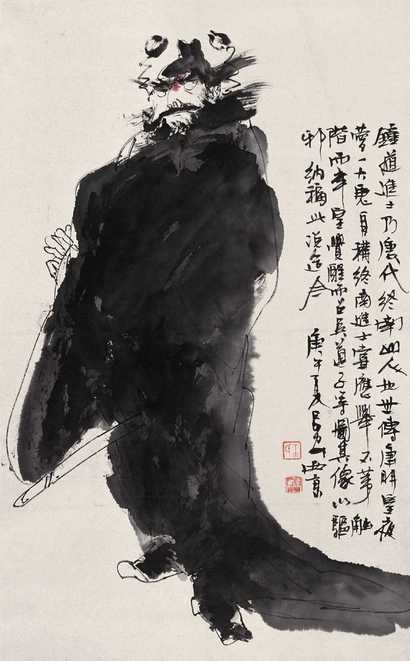 鍾馗進士乃唐代終南山人也世傳唐明皇夜
夢一大鬼自稱終南進士嘗應舉不第觸
階而卒皇覺醒而召吳道子等圖其像以驅
邪納福此迄今
庚午夏